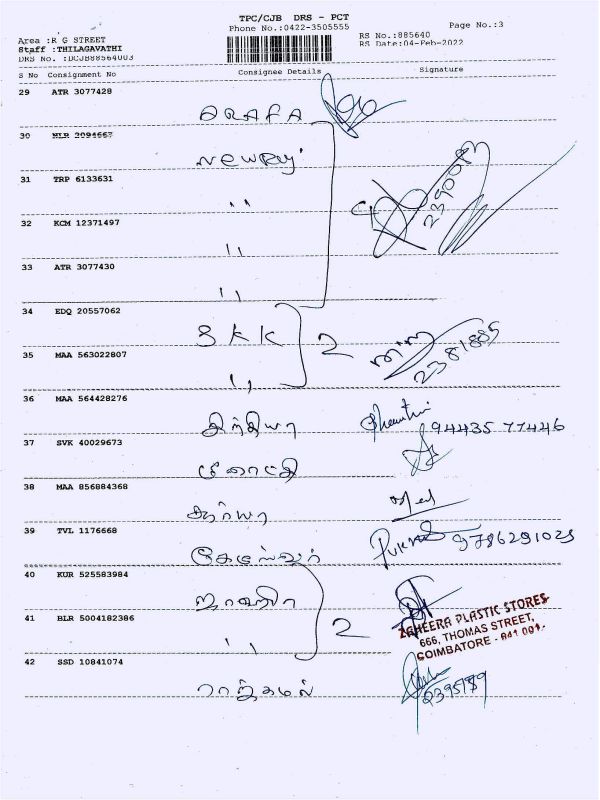 TPC/CJB DRS - PCT
Phone No.:0422-3505555
Page No.:3
Area :R G STREET
RS No.:885640
Staff :THILAGAVATHI
RS Date:04-Feb-2022
DRS No. :DCJB88564003
S No Consignment No Consignee Details Signature
29 ATR 3077428
ARAFA
30 NLR 2094667
31 TRP 6133631
,,
32 KCM 12371497
,,
33 ATR 3077430
,,
34 EDQ 20557062
SKK 2
35 MAA 563022807
2381885
,,
36 MAA 564428276
இந்தியா 94435 77446
37 SVK 40029673
38 MAA 856884368
சூர்யா
39 TVL 1176668
9786291025
40 KUR 525583984
41 BLR 5004182386
,, 2
ZAHEERA PLASTIC STORES
666, THOMAS STREET,
COIMBATORE - 641 001.
42 SSD 10841074
ராஜ்கமல்